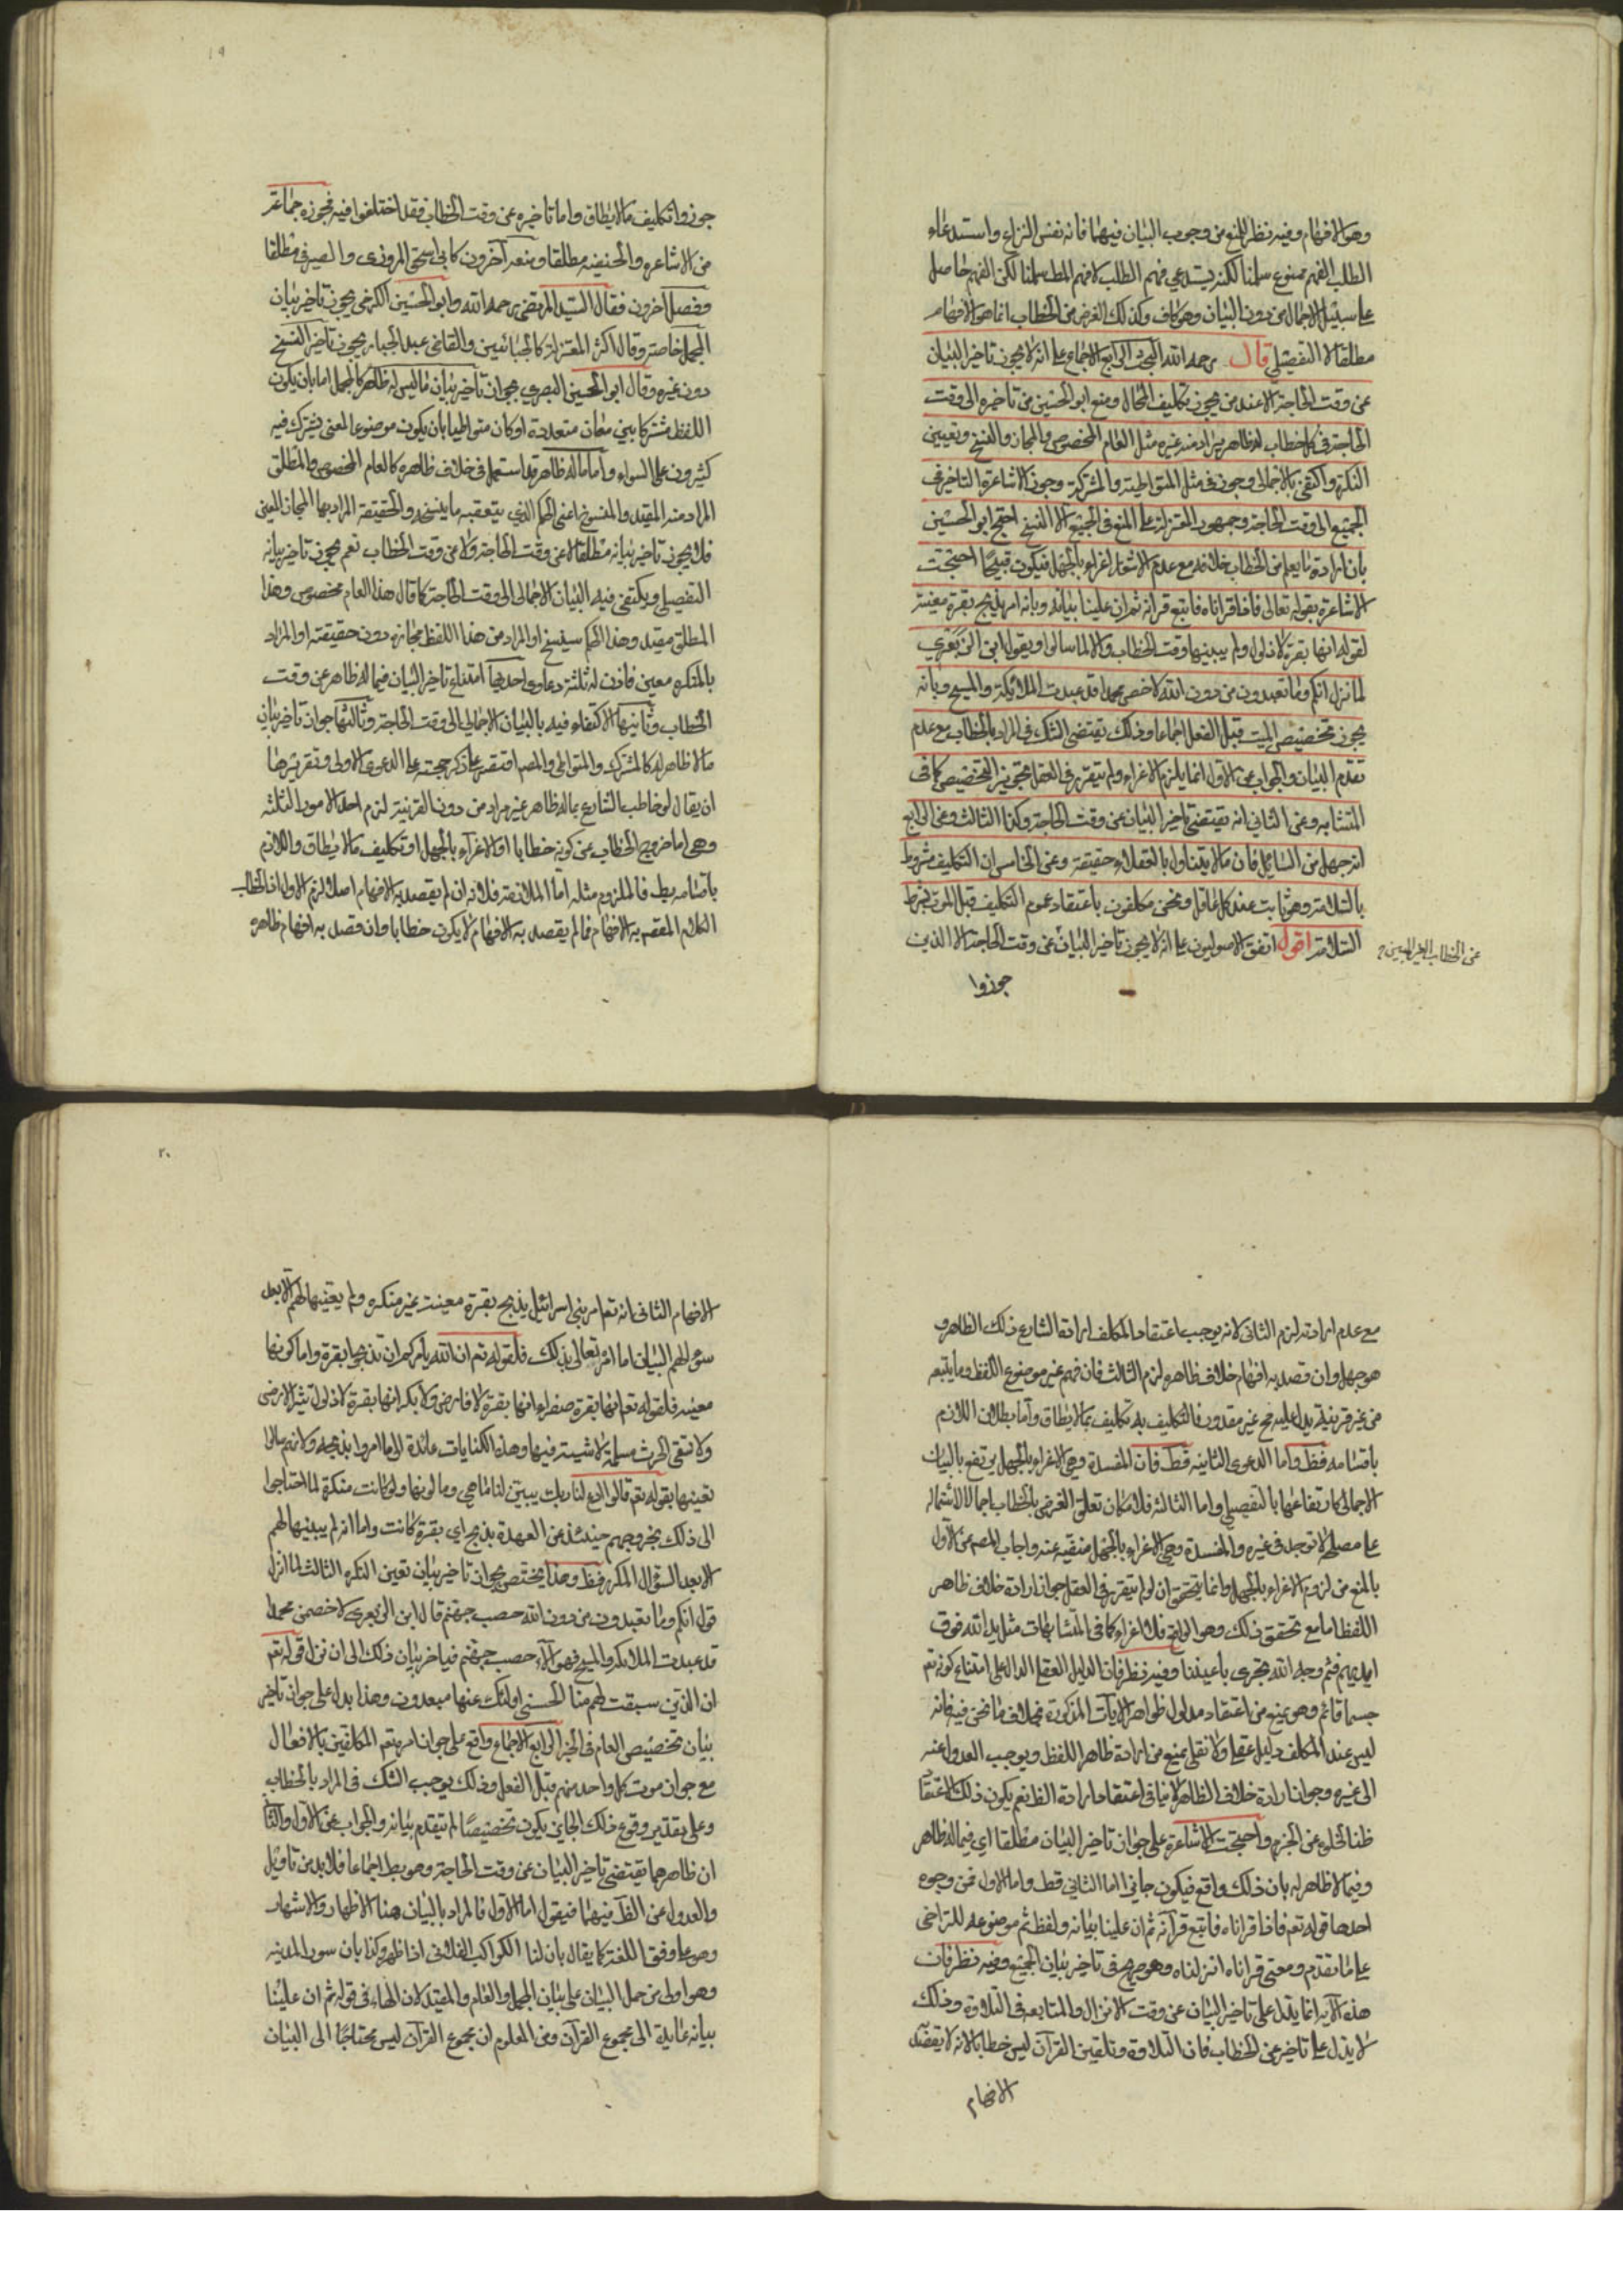 وهو الافهام وفيه نظر للمنع من وجوب البيان فيهما فانه نفس النزاع واستدعاء
الطلب الفهم ممنوع سلمنا لكنه يستدعي فهم الطلب لا فهم المط سلمنا لكن الفهم حاصل
على سبيل الاجمال من دون البيان وهو كاف وكذلك الغرض من الخطاب انما هو الافهام
مطلقا لا التفصيلي قال رحمه الله البحث الرابع الاجماع على انه لا يجوز تاخير البيان
عن وقت الحاجة الا عند من يجوز تكليف المحال ومنع ابو الحسين من تاخيره الى وقت
الحاجة في كل خطاب له ظاهر يراد منه غيره مثل العام المخصوص والمجاز والنسخ وتعيين
النكرة واكتفى بالاجمالي وجوز في مثل المتواطية والمشتركة وجوز الاشاعرة التاخير في
الجميع الى وقت الحاجة وجمهور المعتزلة على المنع في الجميع الا النسخ احتج ابو الحسين
بان ارادة ما يعلم من الخطاب خلافه مع عدم الاشعار اغراء بالجهل فيكون قبيحا احتجت
الاشاعرة بقوله تعالى فاذا قراناه فاتبع قرانه ثم ان علينا بيانه وبانه امر بذبح بقرة معينة
لقوله انها بقرة لا ذلول ولم يبينها وقت الخطاب والا لما سالوا وبقول ابن الزبعري
لما نزل انكم وما تعبدون من دون الله لاخصمن محمدا قد عبدت الملائكة والمسيح وبانه
يجوز تخصيص الميت قبل الفعل اجماعا وذلك يقتضي الشك في المراد بالخطاب مع عدم
تقدم البيان والجواب عن الاول انما يلزم الاغراء ولم يتقرر في العقل تجويز التخصيص كما في
المتشابه وعن الثاني انه يقتضي تاخير البيان عن وقت الحاجة وكذا الثالث وعن الرابع
انه جهل من السائل فان ما لا يتناول بالعقلاء حقيقة وعن الخامس ان التكليف مشروط
بالسلامة وهو ثابت عند كل عاقل ونحن مكلفون باعتقاد عموم التكليف قبل الموت بشرط
السلامة اقول اتفق الاصوليون على انه لا يجوز تاخير البيان عن وقت الحاجة الا الذين
عن الخطاب الغير المبين
جوزوا
١٩
جوزوا تكليف ما لا يطاق واما تاخيره عن وقت الخطاب فقد اختلفوا فيه فجوزه جماعة
من الاشاعره والحنفيه مطلقا ومنعه آخرون كابى اسحق المروزى والصيرفي مطلقا
وفصل آخرون فقال السيد المرتضى رحمه الله وابو الحسين الكرخي يجوز تاخير بيان
المجمل خاصة وقال اكثر المعتزلة كالجبائيين والقاضي عبد الجبار يجوز تاخير النسخ
دون غيره وقال ابو الحسين البصري يجوز تاخير بيان ما ليس له ظاهر كالمجمل اما بان يكون
اللفظ مشتركا بين معان متعددة او كان متواطيا بان يكون موضوعا لمعنى يشترك فيه
كثيرون على السواء واما ما له ظاهر قد استعمل في خلاف ظاهره كالعام المخصوص والمطلق
المراد منه المقيد والمنسوخ اعنى الحكم الذي يتعقبه ما ينسخه والحقيقة المراد بها المجاز المعين
فلا يجوز تاخير بيانه مطلقا لا عن وقت الحاجة ولا عن وقت الخطاب نعم يجوز تاخير بيانه
التفصيلي ويكتفي فيه البيان الاجمالي الى وقت الحاجة كما قال هذا العام مخصوص وهذا
المطلق مقيد وهذا الحكم سينسخ او المراد من هذا اللفظ مجازه دون حقيقته او المراد
بالمنكره معين فاذن له ثلثة دعاوى احديها امتناع تاخير البيان فيما له ظاهر عن وقت
الخطاب وثانيها الاكتفاء فيه بالبيان الاجمالي الى وقت الحاجة وثالثها جواز تاخير بيان
ما لا ظاهر له كالمشترك والمتواطي والمصم اقتصر على ذكر حجته على الدعوى الاولى وتقريرها
ان يقال لو خاطب الشارع بماله ظاهر غير مراد من دون القرينة لزم احد الامور الثلثه
وهى اما خروج الخطاب عن كونه خطابا او الاغراء بالجهل او تكليف ما لا يطاق واللازم
باقسامه بط فالملزوم مثله اما الملازمة فلانه ان لم يقصد به الافهام اصلا لزم الاول اذ الخطاب
الكلام المقصد به الافهام فما لم يقصد به الافهام لا يكون خطابا وان قصد به افهام ظاهره
مع عدم ارادته لزم الثاني لانه يوجب اعتقاد المكلف ارادة الشارع ذلك الظاهر و
هو جهل وان قصد به افهام خلاف ظاهره لزم الثالث فان فهم غير موضوع اللفظ وما يتبعه
من غير قرينة يدل عليه مح غير مقدور فالتكليف به تكليف بما لا يطاق واما بطلان اللازم
باقسامه فظ واما الدعوى الثانيه فظ فان المفسدة وهي الاغراء بالجهل يرتفع بالبيان
الاجمالى كارتفاعها بالتفصيلي واما الثالثه فلامكان تعلق الغرض بالخطاب اجمالا لاشتماله
على مصلحة لا توجد في غيره والمفسدة وهي الاغراء بالجهل منتفيه عنه واجاب المصم عن الاول
بالمنع من لزوم الاغراء بالجهل وانما يتحقق ان لو لم يتقرر في العقل جواز ارادة خلاف ظاهر
اللفظ اما مع تحقق ذلك وهو الواقع فلا اغراء كما في المتشابهات مثل يد الله فوق
ايديهم فثم وجه الله تجرى باعيننا وفيه نظر فان الدليل العقلي الدال على امتناع كونه تع
جسما قائم وهو يمنع من اعتقاد مدلول ظواهر الآيات المذكورة بخلاف ما نحن فيه فانه
ليس عند المكلف دليل عقلي ولا نقلي يمنع من ارادة ظاهر اللفظ ويوجب العدول عنه
الى غيره وجواز ارادة خلاف الظاهر لا ينافي اعتقاد ارادة الظ نعم يكون ذلك الاعتقاد
ظنا لخلوه عن الجزم واحتجت الاشاعرة على جواز تاخير البيان مطلقا اي فيما له ظاهر
وفيما لا ظاهر له بان ذلك واقع فيكون جايزا اما الثاني فظ واما الاول فمن وجوه
احدها قوله تعم فاذا قراناه فاتبع قرآنه ثم ان علينا بيانه ولفظ ثم موضوعه للتراخى
على ما تقدم ومعنى قراناه انزلناه وهو صريح في تاخير بيان الجميع وفيه نظر فان
هذه الآيه انما يدل على تاخير البيان عن وقت الانزال والمتابعه في التلاوة وذلك
لا يدل على تاخير عن الخطاب فان التلاوة وتلقين القرآن ليس خطابا لانه لا يقصد
الافهام
٢٠
الافهام الثاني انه تعم امر بني اسرائيل بذبح بقرة معينة غير منكره ولم يعينها لهم الا بعد
سؤالهم البيان اما امر تعالى بذلك فلقوله تم ان الله يأمركم ان تذبحوا بقرة واما كونها
معينه فلقوله تعم انها بقرة صفراء انها بقرة لا فارض ولا بكر انها بقرة لا ذلول تثير الارض
ولا تسقى الحرث مسلمة لا شية فيها وهذه الكنايات عائدة الى ما امروا بذبحه ولانهم سالوا
تعيينها بقوله تعم قالوا ادع لنا ربك يبين لنا ما هي وما لونها ولو كانت منكرة لما احتاجوا
الى ذلك بخروجهم حينئذ عن العهدة بذبح اي بقرة كانت واما انه لم يبينها لهم
الا بعد السؤال المكرر فظ وهذا يختص بجواز تاخير بيان تعين النكره الثالث لما انزل
قوله انكم وما تعبدون من دون الله حصب جهنم قال ابن الزبعرى لاخصمن محمدا
قد عبدت الملائكه والمسيح فهؤلاء حصب جهنم فتاخر بيان ذلك الى ان نزل قوله تعم
ان الذين سبقت لهم منا الحسنى اولئك عنها مبعدون وهذا يدل على جواز تاخير
بيان تخصيص العام في الخبر الرابع الاجماع واقع على جواز امره تعم المكلفين بالافعال
مع جواز موت كل واحد منهم قبل الفعل وذلك يوجب الشك في المراد بالخطاب
وعلى تقدير وقوع ذلك الجايز يكون تخصيصا لم يتقدم بيانه والجواب عن الاول والثانى
ان ظاهرهما يقتضي تاخير البيان عن وقت الحاجة وهو بط اجماعا فلابد من تاويل
والعدول عن الظ فيهما فيقول اما الاول فالمراد بالبيان هنا الاظهار والاشهار
وهو على وفق اللغة كما يقال بان لنا الكواكب الفلاني اذا ظهر وكذا بان سور المدينه
وهو اولى من حمل البيان على بيان المجمل والعام والمقيد لان الهاء في قوله ثم ان علينا
بيانه عايدة الى مجموع القرآن ومن المعلوم ان مجموع القرآن ليس محتاجا الى البيان